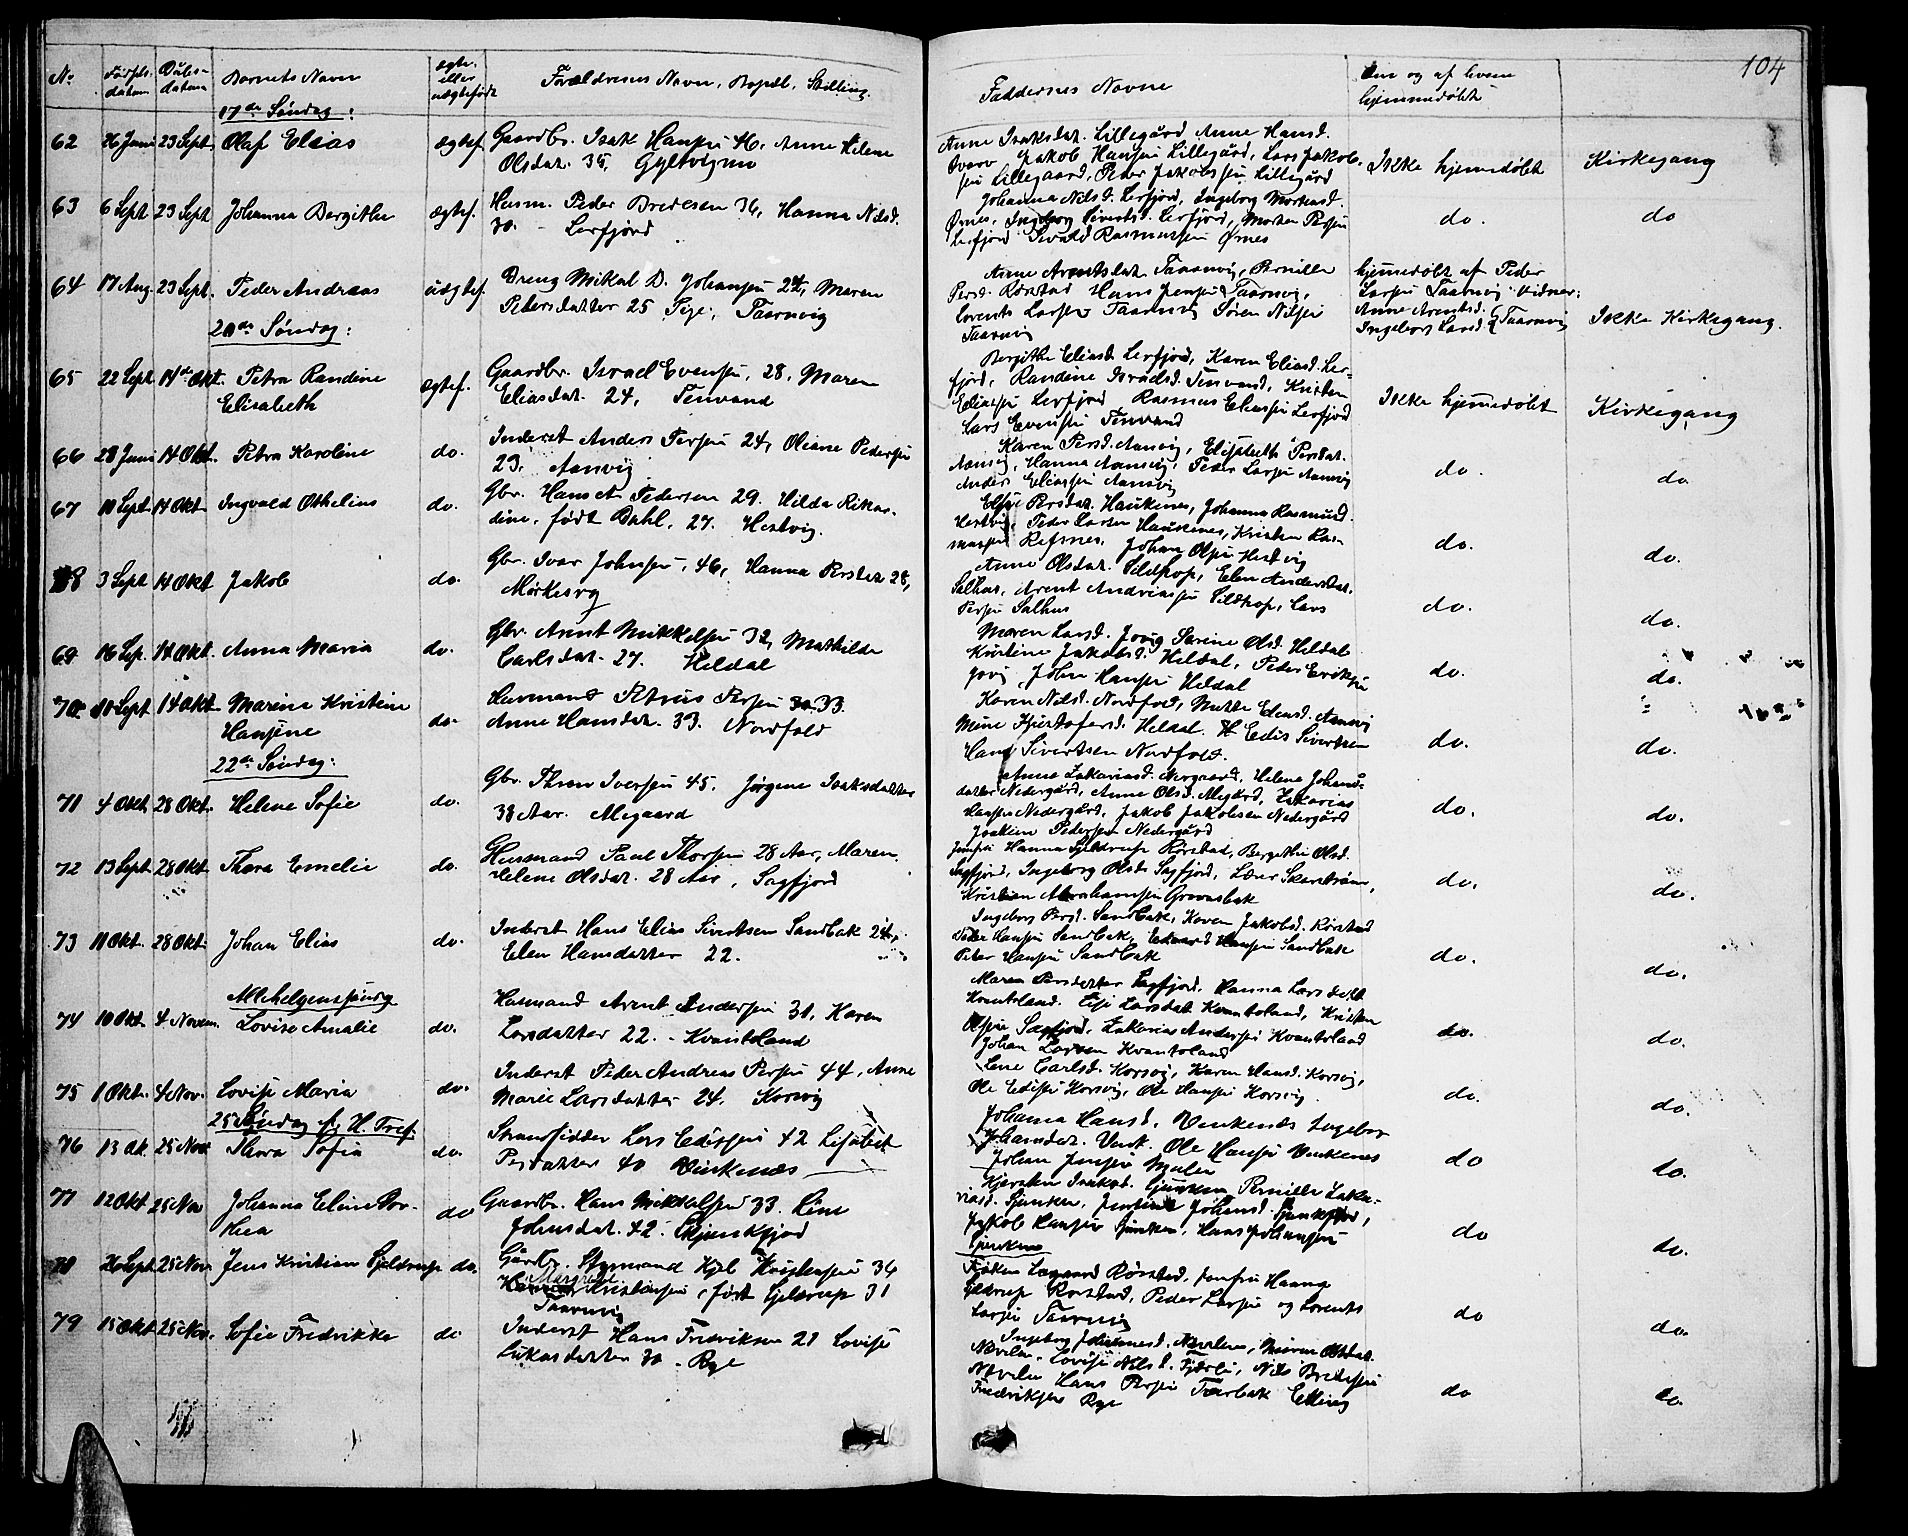 104
No Fødsels- datum Døbes- datum Barnets Navn ægte eller uægtefødt Forældrenes Navn, Bopæl, Stilling. Faddernes Navne Om og af hvem hjemmedøbt
17de Søndag:
62 26 Juni 23 Sept. Olaf Elias ægtef. Gaardbr. Isak Hansen 46, Anne Helene
Olsdat. 35,
Anne Isaksdat. Lillegård, Anne Hansd.
Jakob Hansen Lillegård, Lars Jakob-
sen Lillegaard, Peder Jakobsen Lillegård
Ikke hjemmedøbt Kirkegang
63 6 Sept 23 Sept Johanna Bergithe ægtef. Husm. Peder Bredesen 36, Hanna Nilsd.
30. - Lerfjord
Johanna Nilsd. Lerfjord, Ingeborg Mortensd.
Ørnes, Ingeborg Sivertsd. Lerfjord, Morten Persen
Lerfjord Sivald Rasmussen Ørnes
do. do
64 17 Aug. 23 Sept. Peder Andreas uægtef. Dreng Mikal D. Johansen 24, Maren
Petersdatter 25 Pige, Taarnvig
Anne Arentsdat. Taarnvig, Pernille
Persd. Rørstad Hans Jensen Taarnvig,
Lorents Larsen Taarnvig Søren Nilsen
Taarnvig
hjemmedøbt af Peder
Larsen Taarnvig Vidner:
Anne Arentsd.
Ingeborg Larsd. Taarnvig
Ikke Kirkegang.
20de Søndag:
65 22 Sept. 14de Okt. Petra Randine
Elisabeth
ægtef. Gaardbr. Israel Evensen, 28, Maren
Eliasdat. 24, Tenvand
Bergithe Eliasd. Lerfjord, Karen Eliasd. Ler-
fjord, Randine Israelsd. Tenvand, Kristen
Eliassen Lerfjord Rasmus Eliassen Lerfjord
Lars Evensen Tenvand
Ikke hjemmedøbt Kirkegang
66 28 Juni 14 Okt. Petra Karoline do. Inderst Anders Persen 24, Oliane Pedersen
23. Aanvig
Karen Persd. Aanvig, Elisabeth Persdat.
Aanvig, Hanna Aanvig, Peder Larsen Aanvig
Anders Eliassen Aanvig
do. do.
67 10 Sept. 14 Okt. Ingvald Othelius do. Gbr. Hans A Pedersen 29. Hilda Rikar-
dine, født Dahl, 27. Hestvig.
Elsse Persdat. Haukenes, Johanna Rasmusd.
Hestvig, Peder Larsen Haukenes, Kristen Ras-
mussen Refsnes, Johan Olsen Hestvig
do. do.
68 3 Sept 14 Okt Jakob do. Gbr. Ivar Johnsen, 46, Hanna Persdat 28,
Mørkesvg
Anne Olsdat. Sildhop, Elen Andersdat.
Salhus, Arent Andreassen Sildhop, Lars
Persen Salhus
do. do.
69 16 Sep. 14 Okt. Anna Maria do. Gbr. Arent Mikkelsen 32, Mathilde
Carlsdat. 27. Heldal
Maren Larsd. Jovig Sarine Olsd. Heldal
Kristine Jakobsd. Heldal, Peder Eriksen
Jovig, Johan Hansen Heldal
do. do.
70 10 Sept. 14 Okt. Marine Kristine
Hansine
do. Husmand Petrus Persen 33.
Anne Hansdat. 33. Nordfold
Karen Nilsd. Nordfold, Mette Edisd. Aanvig
Mine Kristofersd. Heldal. H Edis Sivertsen
Hans Sivertsen Nordfold.
do. do.
22de Søndag:
71 4 Okt. 28 Okt. Helene Sofie do. Gbr. Thron Iversen 45. Jørgine Isaksdatter
38 Aar. Megaard
Anna Zakariasd. Nergaard, Helene Johans-
datter Nedergård, Anne Olsd. Megård, Zakarias
Hansen Nedergård, Jakob Jakobsen Nedergård
Joakim Pedersen Nedergård
do. do.
72 13 Sept. 28 Okt. Thora Emelie do. Husmand Paul Thorsen 28 Aar, Maren
Helene Olsdat. 28 Aar, Sagfjord
Jomfru Hanna Gjeldrup Rørstad, Bergethe Olsd.
Sagfjord, Ingeborg Olsdt Sagfjord, Lærer
Kristian Abrahamsen
do. do.
73 11 Okt. 28 Okt. Johan Elias do. Inderst Hans Elias Sivertsen Sandbak 24,
Elen Hansdatter 22.
Ingeborg Persd. Sandbak, Karen Jakobsd. Rørstad
Peder Hansen Sandbak, Edvard Hansen Sandbak
Peter Hansen Sandbak
do. do.
Allehelgenssøndag
74 10 Okt. 4 Novem. Lovise Amalie do. Husmand Arent Andersen 31, Karen
Larsdatter 22. - Kvantoland
Maren Larsdatter Sagfjord, Hanna Larsdatt
Kvantoland. Else Larsdat Kvantoland, Kristen
Olsen Sagfjord, Zakarias Andersen Kvantoland
Johan Larsen Kvantoland
do. do.
75 1 Okt. 4 Nov. Lovise Maria do. Inderst Peder Andreas Persen 44, Anne
Marie Larsdatter 24. Korsvig
Lene Carlsd. Korsvig, Karen Hansd. Korsvig,
Ole Edissen Korsvig, Ole Hansen Korsvig.
do. do.
25 Søndag f. H. Tref.
76 13 Ok. 25 Nov. Thora Sofia do. Strandsidder Lars Edissen 42 Lisabet
Persdatter 40 Vinkenæs
Johanna Hansd. Vinkenæs Ingebor
Johansdat. Ole Hansen Vinkenes
Johan Jensen
do do.
77 12 Okt 25 Nov Johanna Eline Dor-
thea
do Gaardbr. Hans Mikkelsen 33. Line
Johnsdat. 42.
Kjersten Isaksd. Pernille Zaka-
riasd.
Jakob Hansen Hans Johansen
do do.
78 26 Sept. 25 Nov. Jens Kristian Gjeldrup do. Gårbr. Styrmand Kjel Kristensen 34
Margrethe Kristensen, født Gjeldrup 31
Taarnvig
Frøken Rørstad, Jomfru Hanna
Gjeldrup Rørstad, Peder Larsen og Lorents
Larsen Taarnvig
do do.
79 15 Okt 25 Nov. Sofie Fredrikke do Inderst Hans Fredriksen 21 Lovise
Lukasdatter 30 - Røge
Ingeborg Johannesd. Nævelen,
Lovise Nilsd. Nils Bredesen
Hans Persen
Fredriksen
do do.